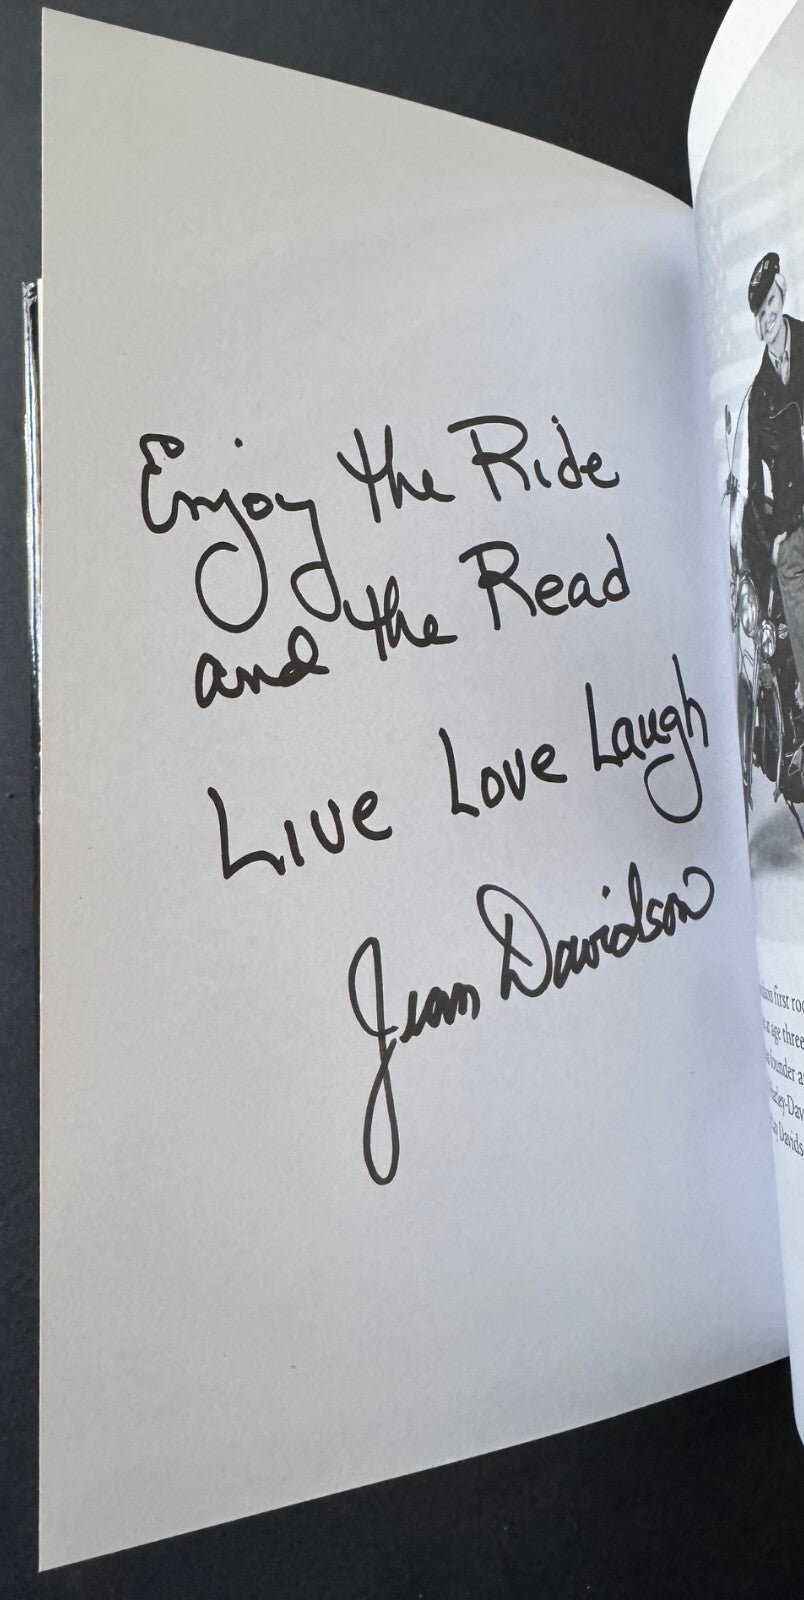 Enjoy the Ride
and the Read
Live Love Laugh
Jean Davidson
first
age three
founder
Davids